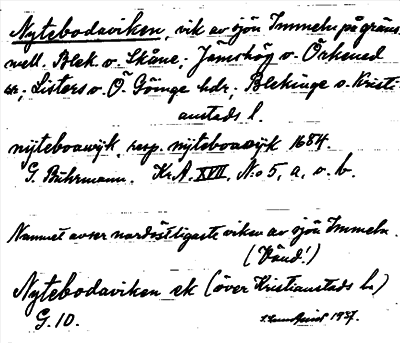 Nytebodaviken, vik av sjön Immeln på gräns.
mell. Blek. o. Skåne; Jämshög o. Örkened
sr; Listers o. Ö. Göinge hdr; Blekinge o. Kristi-
anstads l.
nÿteboawÿk, resp. nÿteboawÿk 1684.
G. Buhrmann. Kr.A. XVII, No 5, a, o. b.
Namnet avser nordöstligaste viken av sjön Immeln.
(Vänd!)
Nytebodaviken ek (över Kristianstads l.)
G. 10. 1937.